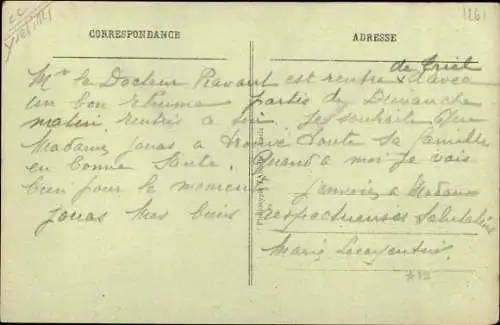 1261
CORRESPONDANCE
ADRESSE
de Triel
Mr le Docteur Ravaut est rentré avec
un bon Rhume partis du Dimanche
matin rentrés a soir. Je souhaite que
Madame Jonas a trouvé toute sa famille
en bonne Santé. Quand a moi je vais
bien pour le moment J'envoie a Madame
Jonas Mes biens respectueuses Salutations
Marie